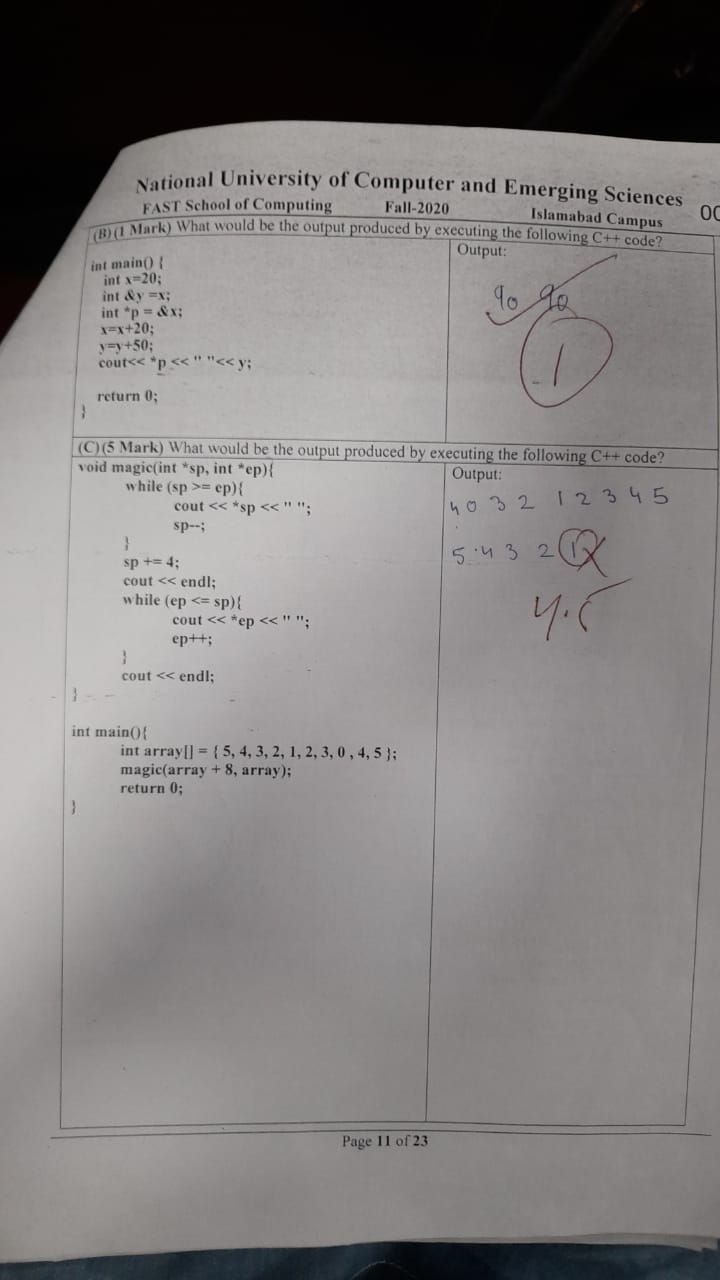 National University of Computer and Emerging Sciences
FAST School of Computing Fall-2020 Islamabad Campus
(B) (1 Mark) What would be the output produced by executing the following C++ code?
int main() {
int x=20;
int &y =x;
int *p = &x;
x=x+20;
y=y+50;
cout<< *p << " "<< y;
return 0;
}
Output:
90 90
1
(C) (5 Mark) What would be the output produced by executing the following C++ code?
void magic(int *sp, int *ep){
while (sp >= ep){
cout << *sp << " ";
sp--;
}
sp += 4;
cout << endl;
while (ep <= sp){
cout << *ep << " ";
ep++;
}
cout << endl;
}
int main(){
int array[] = { 5, 4, 3, 2, 1, 2, 3, 0 , 4, 5 };
magic(array + 8, array);
return 0;
}
Output:
4 0 3 2 1 2 3 4 5
5 4 3 2 1
4.5
Page 11 of 23